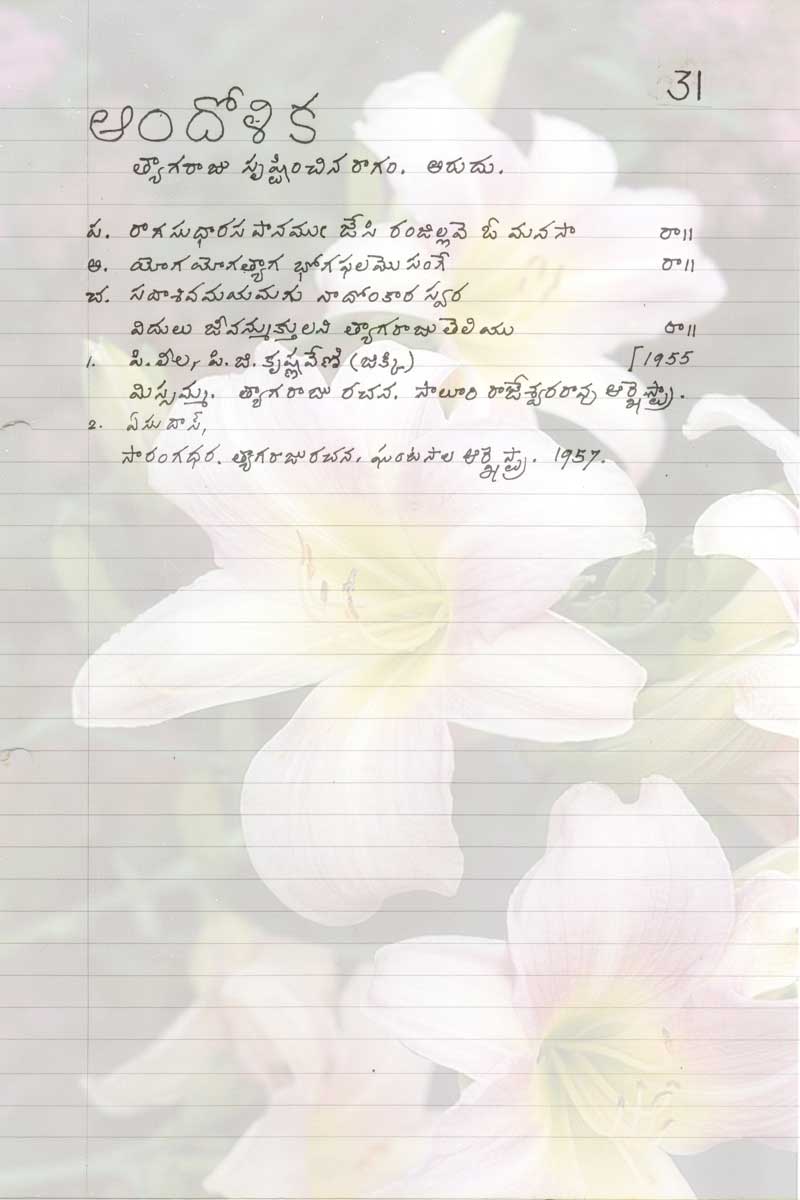 31
ఆందోళిక
త్యాగరాజు సృష్టించిన రాగం. అరుదు.
ప. రాగ సుధారస పానము జేసి రంజిల్లవె ఓ మనసా రా॥
అ. యోగ యోగత్యాగ భోగఫలమొసంగే రా॥
చ. సదాశివమయమగు నాదోంకార స్వర
విదులు జీవన్ముక్తులని త్యాగరాజు తెలియు రా॥
1. పి.లీల, పి.జి.కృష్ణవేణి (జిక్కి) [1955
మిస్సమ్మ. త్యాగరాజు రచన. సాలూరి రాజేశ్వరరావు ఆర్కెస్ట్రా.
2. ఏసుదాస్,
సారంగధర. త్యాగరాజు రచన. ఘంటసాల ఆర్కెస్ట్రా. 1957.